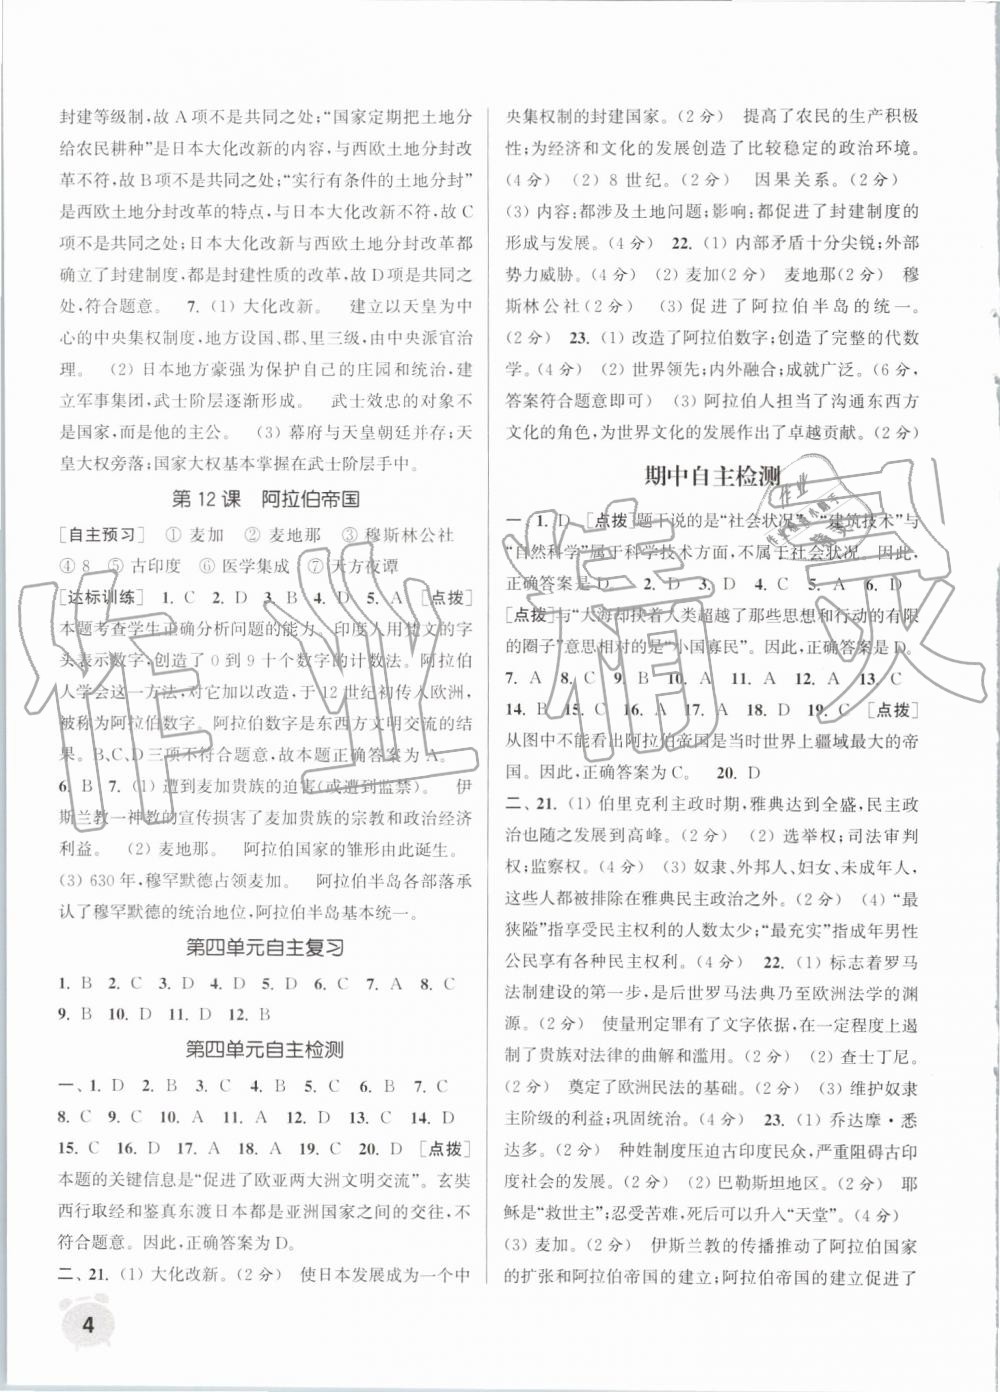 封建等级制,故A项不是共同之处;“国家定期把土地分
给农民耕种”是日本大化改新的内容,与西欧土地分封改
革不符,故B项不是共同之处;“实行有条件的土地分封”
是西欧土地分封改革的特点,与日本大化改新不符,故C
项不是共同之处;日本大化改新与西欧土地分封改革都
确立了封建制度,都是封建性质的改革,故D项是共同之
处,符合题意。 7.(1)大化改新。 建立以天皇为中
心的中央集权制度,地方设国、郡、里三级,由中央派官治
理。 (2)日本地方豪强为保护自己的庄园和统治,建
立军事集团,武士阶层逐渐形成。 武士效忠的对象不
是国家,而是他的主公。 (3)幕府与天皇朝廷并存;天
皇大权旁落;国家大权基本掌握在武士阶层手中。
第12课 阿拉伯帝国
[自主预习] ①麦加 ②麦地那 ③穆斯林公社
④8 ⑤古印度 ⑥医学集成 ⑦天方夜谭
[达标训练] 1. C 2. D 3. D 4. D 5. A [点拨]
本题考查学生正确分析问题的能力。印度人用梵文的字
头表示数字,创造了0到9十个数字的计数法。阿拉伯
人学会这一方法,对它加以改造,于12世纪初传入欧洲,
被称为阿拉伯数字。阿拉伯数字是东西方文明交流的结
果。B、C、D三项不符合题意,故本题正确答案为A。
6. B 7.(1)遭到麦加贵族的迫害(或遭到驱逐)。 伊
斯兰教一神教的宣传损害了麦加贵族的宗教和政治经济
利益。 (2)麦地那。 阿拉伯国家的雏形由此诞生。
(3)630年,穆罕默德占领麦加。 阿拉伯半岛各部落承
认了穆罕默德的统治地位,阿拉伯半岛基本统一。
第四单元自主复习
1. B 2. C 3. C 4. D 5. D 6. C 7. A 8. C
9. B 10. D 11. D 12. B
第四单元自主检测
一、1. D 2. B 3. C 4. B 5. C 6. B 7. C
8. C 9. C 10. A 11. A 12. D 13. C 14. D
15. C 16. D 17. A 18. A 19. C 20. D [点拨]
本题的关键信息是“促进了欧亚两大洲文明交流”。玄奘
西行取经和鉴真东渡日本都是亚洲国家之间的交往,不
符合题意。因此,正确答案为D。
二、21.(1)大化改新。(2分) 使日本发展成为一个中
4
央集权制的封建国家。(2分) 提高了农民的生产积极
性;为经济和文化的发展创造了比较稳定的政治环境。
(4分) (2)8世纪。 因果关系。(2分)
(3)内容:都涉及土地问题;影响:都促进了封建制度的
形成与发展。(4分) 22.(1)内部矛盾十分尖锐;外部
势力威胁。(4分) (2)麦加(2分) 麦地那(2分) 穆
斯林公社(2分) (3)促进了阿拉伯半岛的统一。
(2分) 23.(1)改造了阿拉伯数字;创造了完整的代数
学。(2分) (2)世界领先;内外融合;成就广泛。(6分,
答案符合题意即可) (3)阿拉伯人担当了沟通东西方
文化的角色,为世界文化的发展作出了卓越贡献。(2分)
期中自主检测
一、1. D [点拨]题干说的是“社会状况”,“建筑技术”与
“自然科学”属于科学技术方面,不属于社会状况。因此,
正确答案是D。 2. D 3. C 4. D 5. A 6. D
[点拨]与“大海却挟着人类超越了那些思想和行动的有限
的圈子”意思相对的是“小国寡民”。因此,正确答案是D。
7. A 8. C 9. B 10. A 11. A 12. A 13. C
14. B 15. C 16. A 17. A 18. D 19. C [点拨]
从图中不能看出阿拉伯帝国是当时世界上疆域最大的帝
国。因此,正确答案为C。 20. D
二、21.(1)伯里克利主政时期,雅典达到全盛,民主政
治也随之发展到高峰。(2分) (2)选举权;司法审判
权;监察权。(4分) (3)奴隶、外邦人、妇女、未成年人,
这些人都被排除在雅典民主政治之外。(2分) (4)“最
狭隘”指享受民主权利的人数太少;“最充实”指成年男性
公民享有各种民主权利。(4分) 22.(1)标志着罗马
法制建设的第一步,是后世罗马法典乃至欧洲法学的渊
源。(2分) 使量刑定罪有了文字依据,在一定程度上遏
制了贵族对法律的曲解和滥用。(2分) (2)查士丁尼。
(2分) 奠定了欧洲民法的基础。(2分) (3)维护奴隶
主阶级的利益;巩固统治。(4分) 23.(1)乔达摩·悉
达多。(2分) 种姓制度压迫古印度民众,严重阻碍古印
度社会的发展。(2分) (2)巴勒斯坦地区。(2分) 耶
稣是“救世主”;忍受苦难,死后可以升入“天堂”。(4分)
(3)麦加。(2分) 伊斯兰教的传播推动了阿拉伯国家
的扩张和阿拉伯帝国的建立;阿拉伯帝国的建立促进了
作业精灵